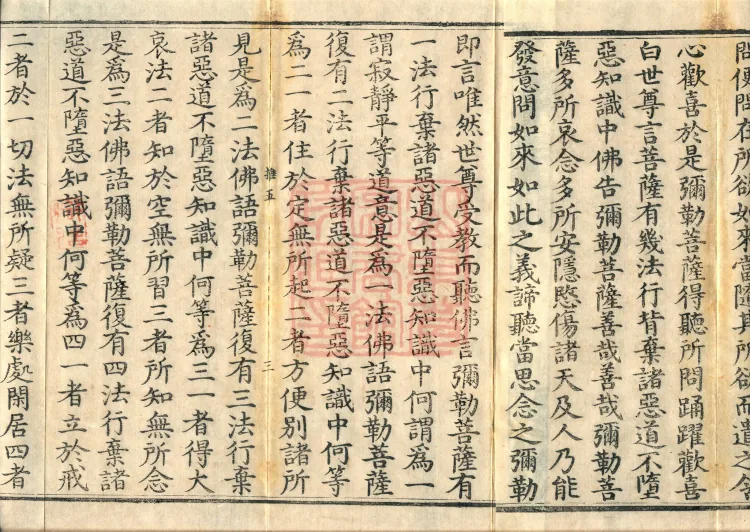 問便問在所欲如來當隨其所欲而遣之
心歡喜於是彌勒菩薩得聽所問踊躍歡喜
白世尊言菩薩有幾法行皆棄諸惡道不墮
惡知識中佛告彌勒菩薩善哉善哉彌勒菩
薩多所哀念多所安隱愍傷諸天及人乃能
發意問如來如此之義諦聽當思念之彌勒
即言唯然世尊受教而聽佛言彌勒菩薩有
一法行棄諸惡道不墮惡知識中何謂為一
謂寂靜平等道意是為一法佛語彌勒菩薩
復有二法行棄諸惡道不墮惡知識中何等
為二一者住於定無所起二者方便別諸所
推五
三
見是為二法佛語彌勒菩薩復有三法行棄
諸惡道不墮惡知識中何等為三一者得大
哀法二者知於空無所習三者所知無所念
是為三法佛語彌勒菩薩復有四法行棄諸
惡道不墮惡知識中何等為四一者立於戒
二者於一切法無所疑三者樂處閑居四者